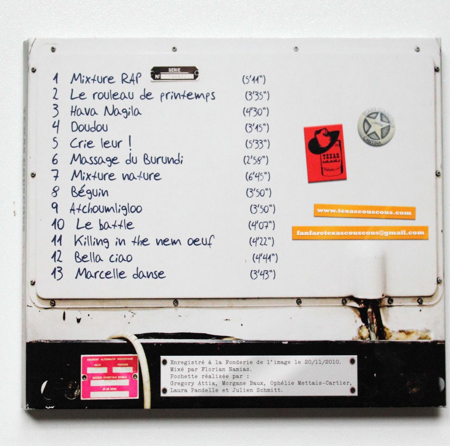 SERIE
N°
1 Mixture RAP (5'11")
2 Le rouleau de printemps (3'35")
3 Hava Nagila (4'30")
4 Doudou (3'15")
5 Crie leur ! (5'33")
6 Massage du Burundi (2'58")
7 Mixture nature (6'45")
8 Béguin (3'50")
9 Atchoumligloo (3'50")
10 Le battle (4'07")
11 Killing in the nem oeuf (4'22")
12 Bella ciao (4'41")
13 Marcelle danse (3'43")
TEXAS
www.texascouscous.com
fanfaretexascouscous@gmail.com
Enregistré à la Fonderie de l'image le 20/11/2010.
Mixé par Florian Namias.
Pochette réalisée par :
Gregory Attia, Morgane Baux, Ophélie Mattais-Cartier,
Laura Pandelle et Julien Schmitt.